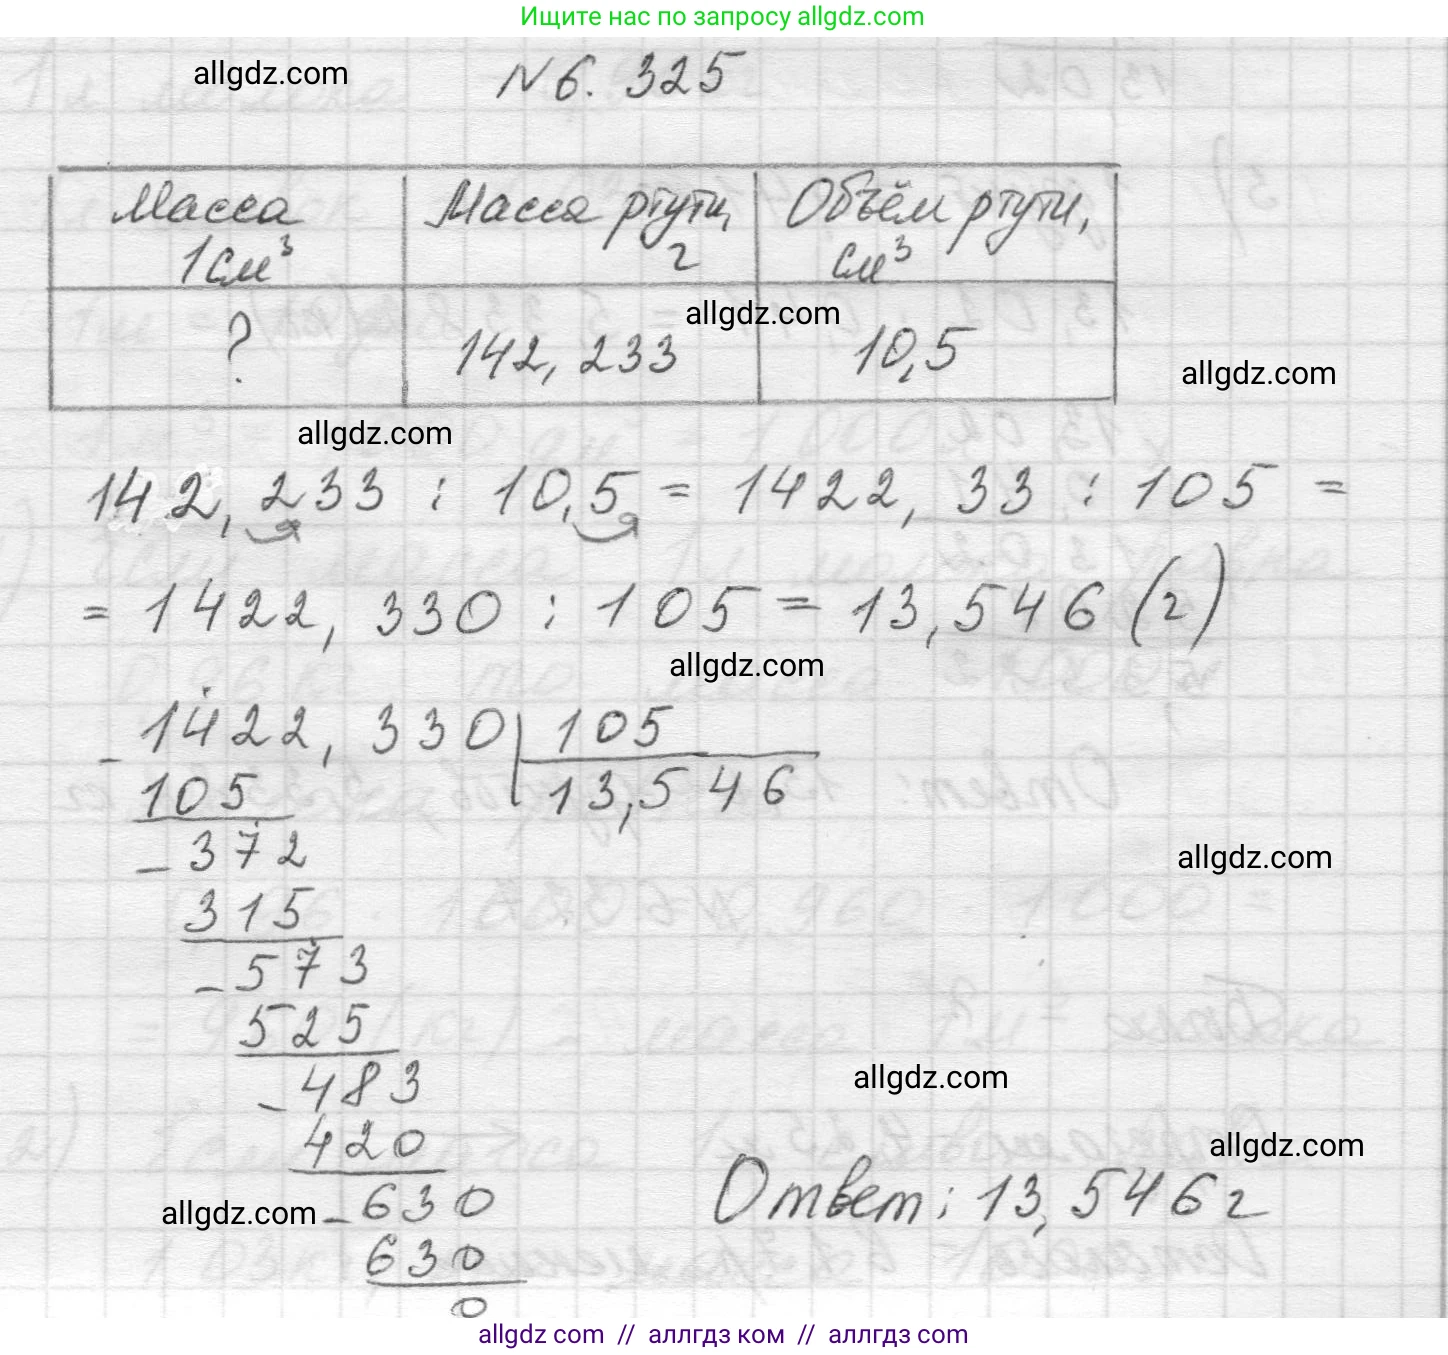 Ищите нас по запросу allgdz.com
allgdz.com
№ 6. 325
Масса 1см³ Масса ртути, г Объём ртути, см³
? 142, 233 10,5
allgdz.com
allgdz.com
allgdz.com
142, 233 : 10,5 = 1422, 33 : 105 =
= 1422, 330 : 105 = 13,546 (г)
allgdz.com
- 1422, 330 105
105 13,546
- 372
allgdz.com
315
- 573
525
- 483
allgdz.com
420
allgdz.com
allgdz.com
- 630
Ответ: 13,546 г
630
0
allgdz com // аллгдз ком // аллгдз com